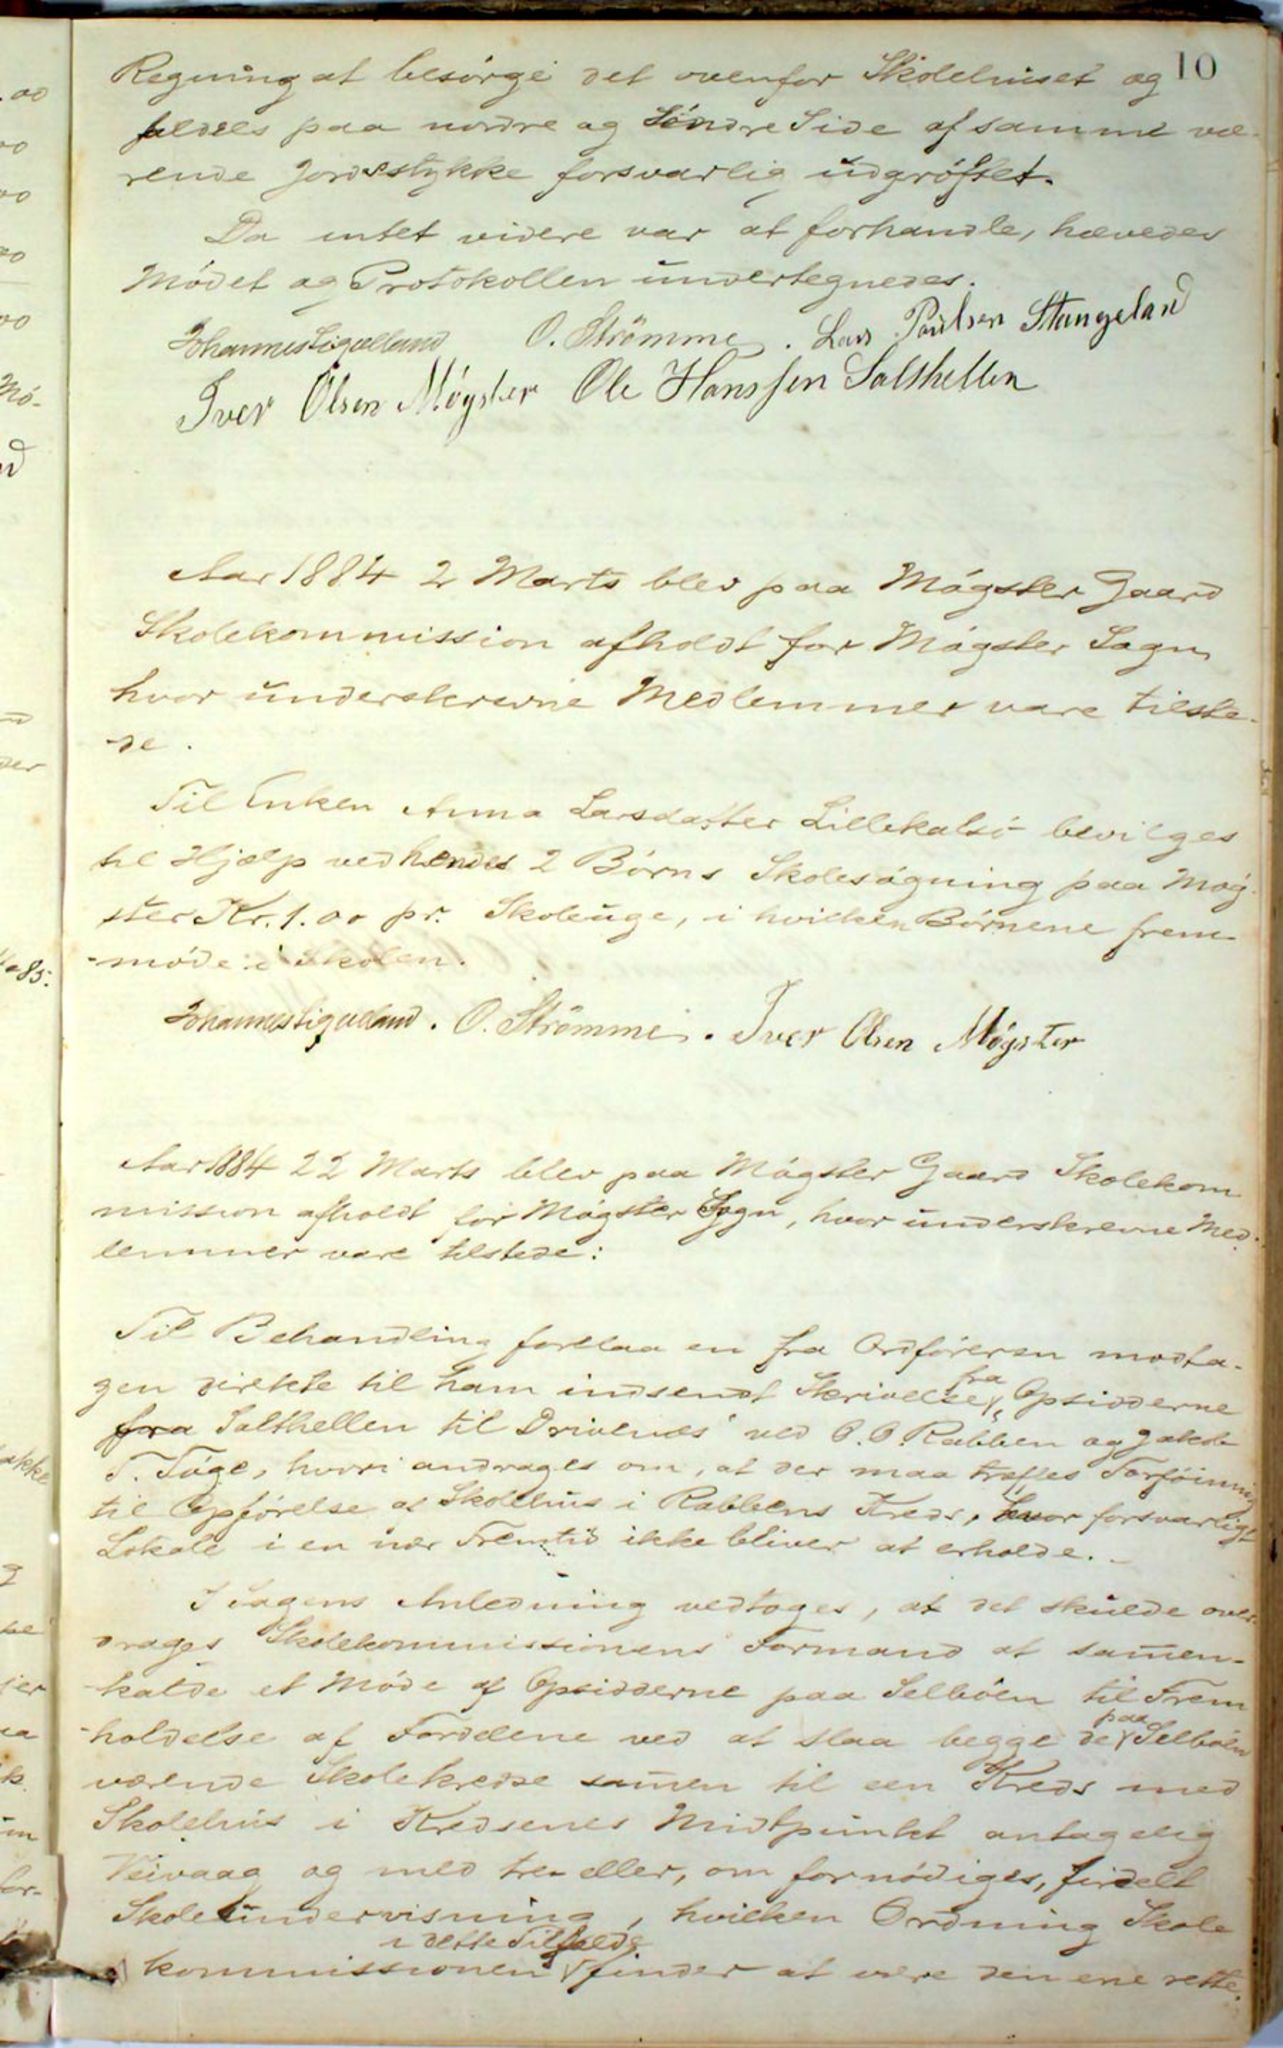 10
Regning at besörge det ovenfor Skolehuset og
fældes paa nordre og Söndre Side af samme væ-
rende Jordstykke forsvarlig udgröftet.
Da intet videre var at forhandle, hævedes
Mödet og Protokollen undertegnedes.
Johannes Sigvelland O. Strömme. Lars Paulsen Stangeland
Iver Olsen Møgster Ole Hanssen Salthellen
Aar 1884 2 Marts blev paa Mögster Gaard
Skolekommission afholdt for Mögster Sogn
hvor underskrevne Medlemmer vare tilste-
-de.
Til Enken Anna Larsdatter Lillekalsö bevilges
til Hjælp ved hendes 2 Börns Skolesögning paa Mög-
ster Kr. 1.00 pr. Skoleuge, i hvilken Börnene frem-
-möde i Skolen.
Johannes Sigvelland. O. Strömme. Iver Olsen Møgster
Aar 1884 22 Marts blev paa Mögster Gaard Skolekom
mission afholdt for Mögster Sogn, hvor underskrevne Med-
lemmer vare tilstede:
Til Behandling forelaa en fra Ordföreren modta-
gen direkte til ham indsendt Skrivelse fra Opsidderne
fra Salthellen til Drivenes ved O. O. Rabben og Jakob
T. Töge, hvori andrages om, at der maa træffes Forföining
til Opförelse af Skolehus i Rabbens Kreds, hvor forsvarligt
Lokale i en nær Fremtid ikke bliver at erholde. -
I Sagens Anledning vedtoges, at det skulde over-
drages Skolekommissionens Formand at sam̄en-
-kalde et Möde af Opsidderne paa Selböen til Frem
-holdelse af Fordelene ved at slaa begge de paa Selböen
værende Skolekredse sam̄en til een Kreds med
Skolehus i Kredsenes Midtpunkt antagelig
Veivaag og med tre- eller, om fornödiges, firdelt
Skoleundervisning, hvilken Ordning Skole
kommissionen i dette Tilfælde finder at være den ene rette.